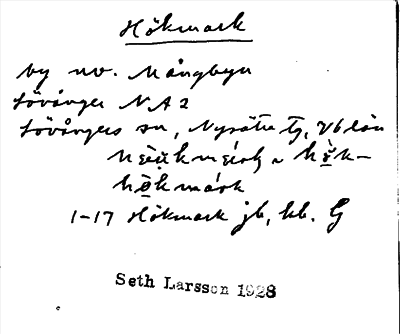 Hökmark
by nv. Mångbyn
Lövånger N.A2
Lövångers sn, Nysätra tg, Vb län
a hök-
hökmark
1-17 Hökmark jb, kb. G
Seth Larsson 1928